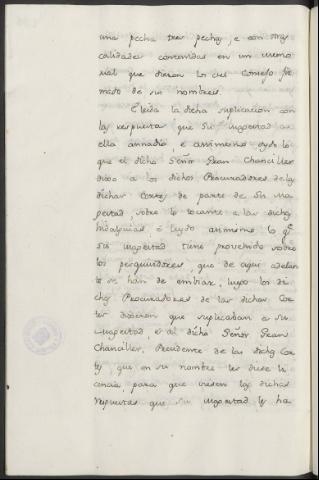 una pecha tres pechos, e con otras
calidades contenidas en un memo
rial que dieron los del Consejo fir
mado de sus nombres.
E leida la dicha suplicacion con
la respuesta que Su magestad a
ella annadio, e assimesmo oydo lo
que el dicho Señor Gran Chanciller
dixo a los dichos Procuradores de las
dichas Cortes de parte de Su Ma
gestad sobre lo tocante a las dichas
hidalguias, e leydo asimismo lo qe
Su magestad tiene proveydo sobre
los perquiridores, que de aqui adelan
te se han de embiar, luego los di
chos Procuradores de las dichas Cor
tes dixeron que suplicaban a su
Magestad, e al dicho Señor Gran
Chanciller, Presidente de las dichas Cor
tes, que en su nombre les diese li
cencia, para que viesen las dichas
respuestas que su magestad les ha